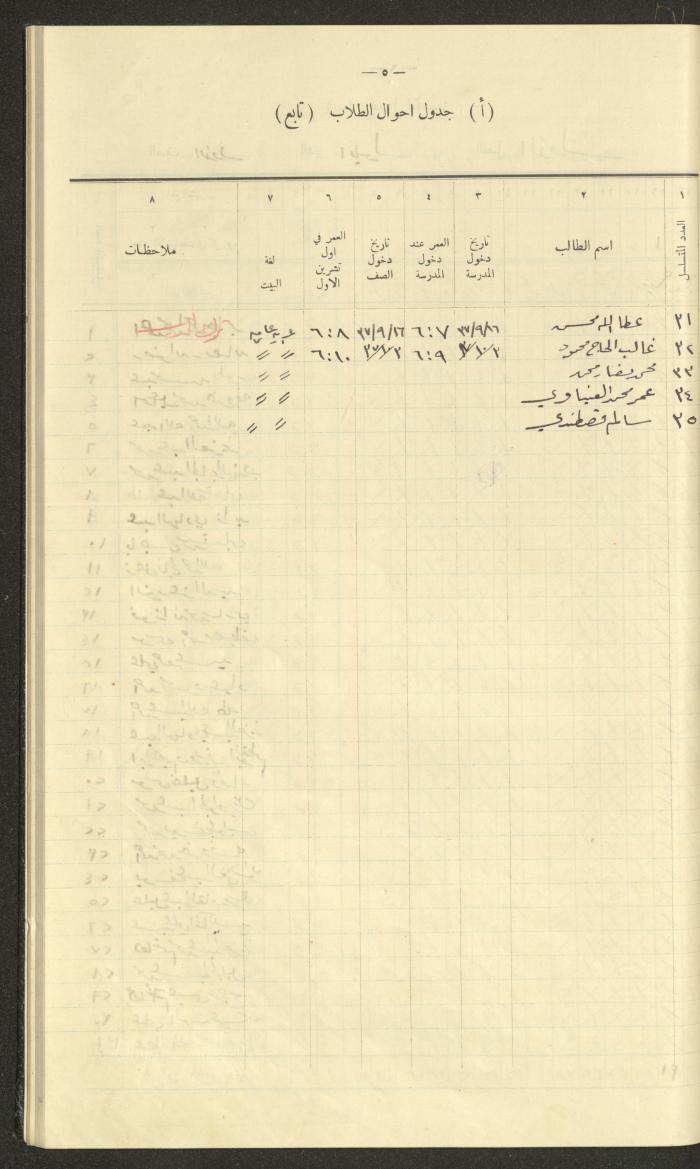 — ٥ —
(أ) جدول احوال الطلاب (تابع)
١ ٢ ٣ ٤ ٥ ٦ ٧ ٨
العدد المتسلسل اسم الطالب تاريخ دخول المدرسة العمر عند دخول المدرسة تاريخ دخول الصف العمر في اول تشرين الاول لغة البيت ملاحظات
٣١ عطا الله محسن ٣٧/٩/١٦ ٦:٧ ٣٧/٩/١٦ ٦:٨ عربيه عاميه
٣٢ غالب الحاج محمود ٦:٩ ٦:١٠ 〃 〃
٣٣ محمد رمضان محمد 〃 〃
٣٤ عمر محمد العيناوي 〃 〃
٣٥ سالم قصطندي 〃 〃